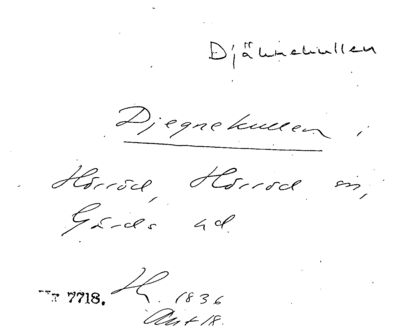 Djäknekullen
Djegnekullen i
Hörröd, Hörröd sn,
Gärds hd
Nr 7718. H. 1836
Akt 18.